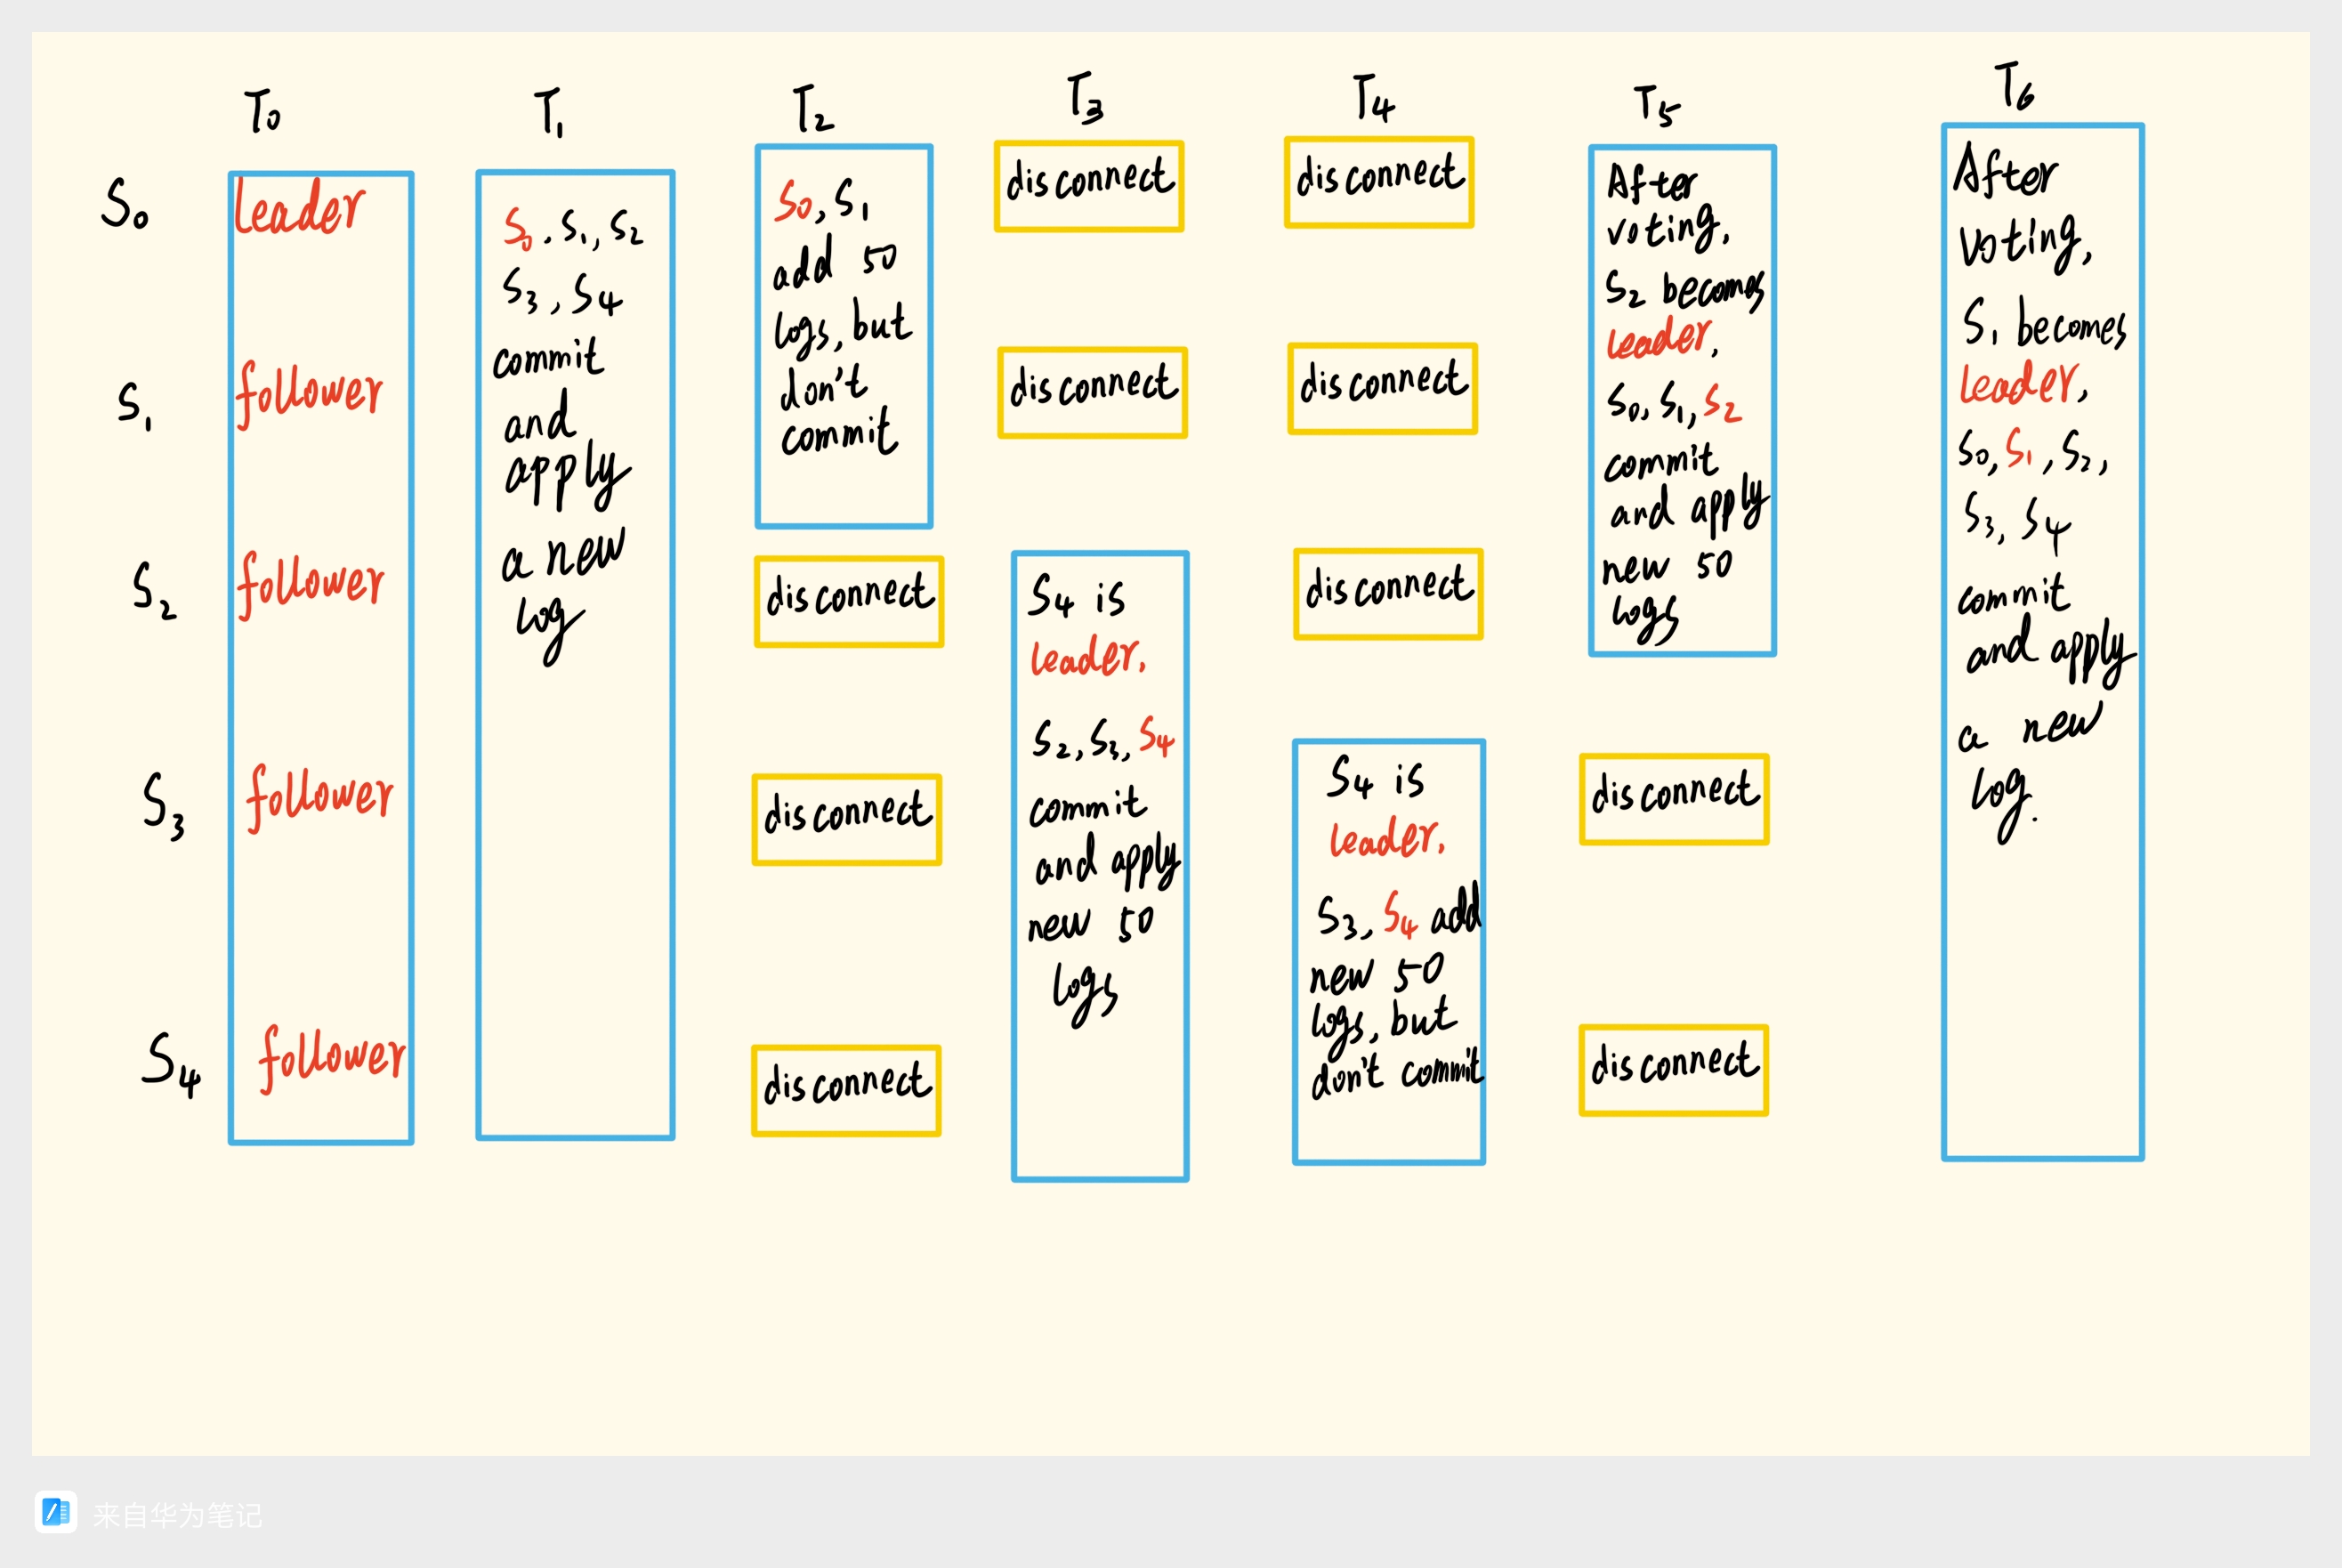 T0
T1
T2
T3
T4
T5
T6
S0
S1
S2
S3
S4
leader
follower
follower
follower
follower
S0, S1, S2
S3, S4
commit
and
apply
a new
log
S0, S1
add 50
logs, but
don't
commit
disconnect
disconnect
disconnect
disconnect
disconnect
S4 is
leader.
S2, S3, S4
commit
and apply
new 50
logs
disconnect
disconnect
disconnect
S4 is
leader.
S3, S4 add
new 50
logs, but
don't commit
After
voting,
S2 becomes
leader,
S0, S1, S2
commit
and apply
new 50
logs
disconnect
disconnect
After
Voting,
S1 becomes
leader,
S0, S1, S2,
S3, S4
commit
and apply
a new
log.
来自华为笔记